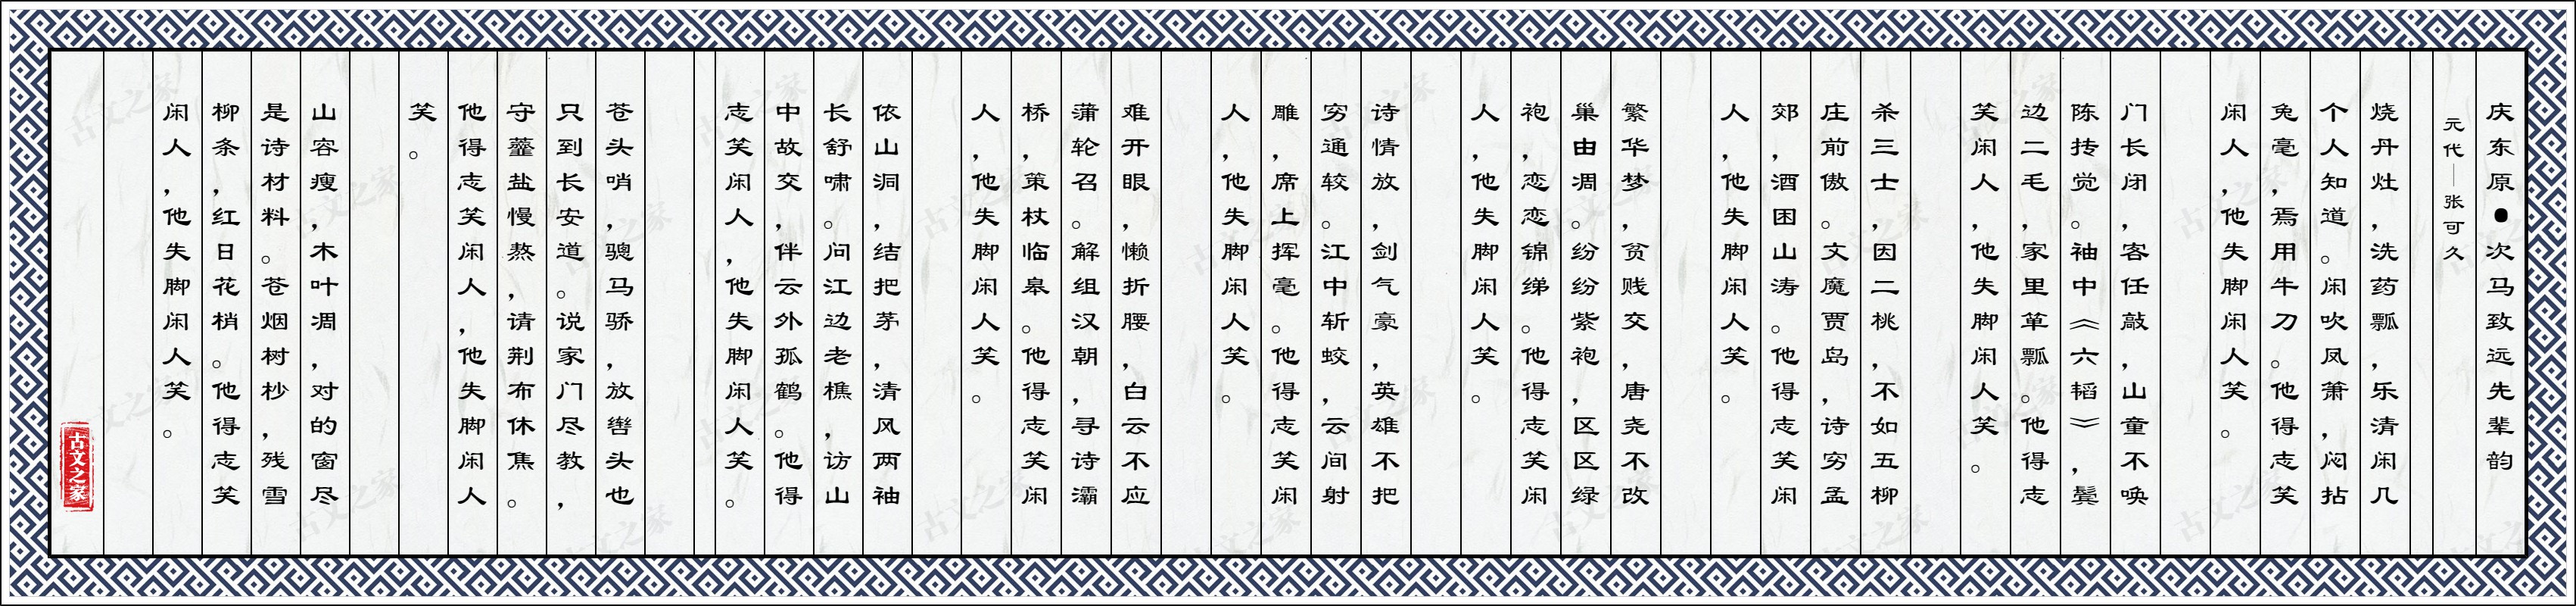 庆东原●次马致远先辈韵
元代—张可久
烧丹灶，洗药瓢，乐清闲几
个人知道。闲吹凤萧，闷拈
兔毫，焉用牛刀。他得志笑
闲人，他失脚闲人笑。
门长闭，客任敲，山童不唤
陈抟觉。袖中《六韬》，鬓
边二毛，家里箪瓢。他得志
笑闲人，他失脚闲人笑。
杀三士，因二桃，不如五柳
庄前傲。文魔贾岛，诗穷孟
郊，酒困山涛。他得志笑闲
人，他失脚闲人笑。
繁华梦，贫贱交，唐尧不改
巢由凋。纷纷紫袍，区区绿
袍，恋恋锦绨。他得志笑闲
人，他失脚闲人笑。
诗情放，剑气豪，英雄不把
穷通较。江中斩蛟，云间射
雕，席上挥毫。他得志笑闲
人，他失脚闲人笑。
难开眼，懒折腰，白云不应
蒲轮召。解组汉朝，寻诗灞
桥，策杖临皋。他得志笑闲
人，他失脚闲人笑。
依山洞，结把茅，清风两袖
长舒啸。问江边老樵，访山
中故交，伴云外孤鹤。他得
志笑闲人，他失脚闲人笑。
苍头哨，骢马骄，放辔头也
只到长安道。说家门尽教，
守虀盐慢熬，请荆布休焦。
他得志笑闲人，他失脚闲人
笑。
山容瘦，木叶凋，对的窗尽
是诗材料。苍烟树杪，残雪
柳条，红日花梢。他得志笑
闲人，他失脚闲人笑。
古文之家